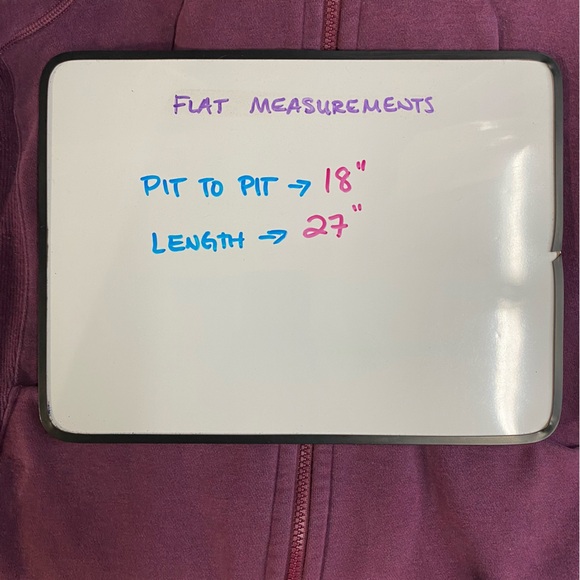 FLAT MEASUREMENTS
PIT TO PIT → 18"
LENGTH → 27"